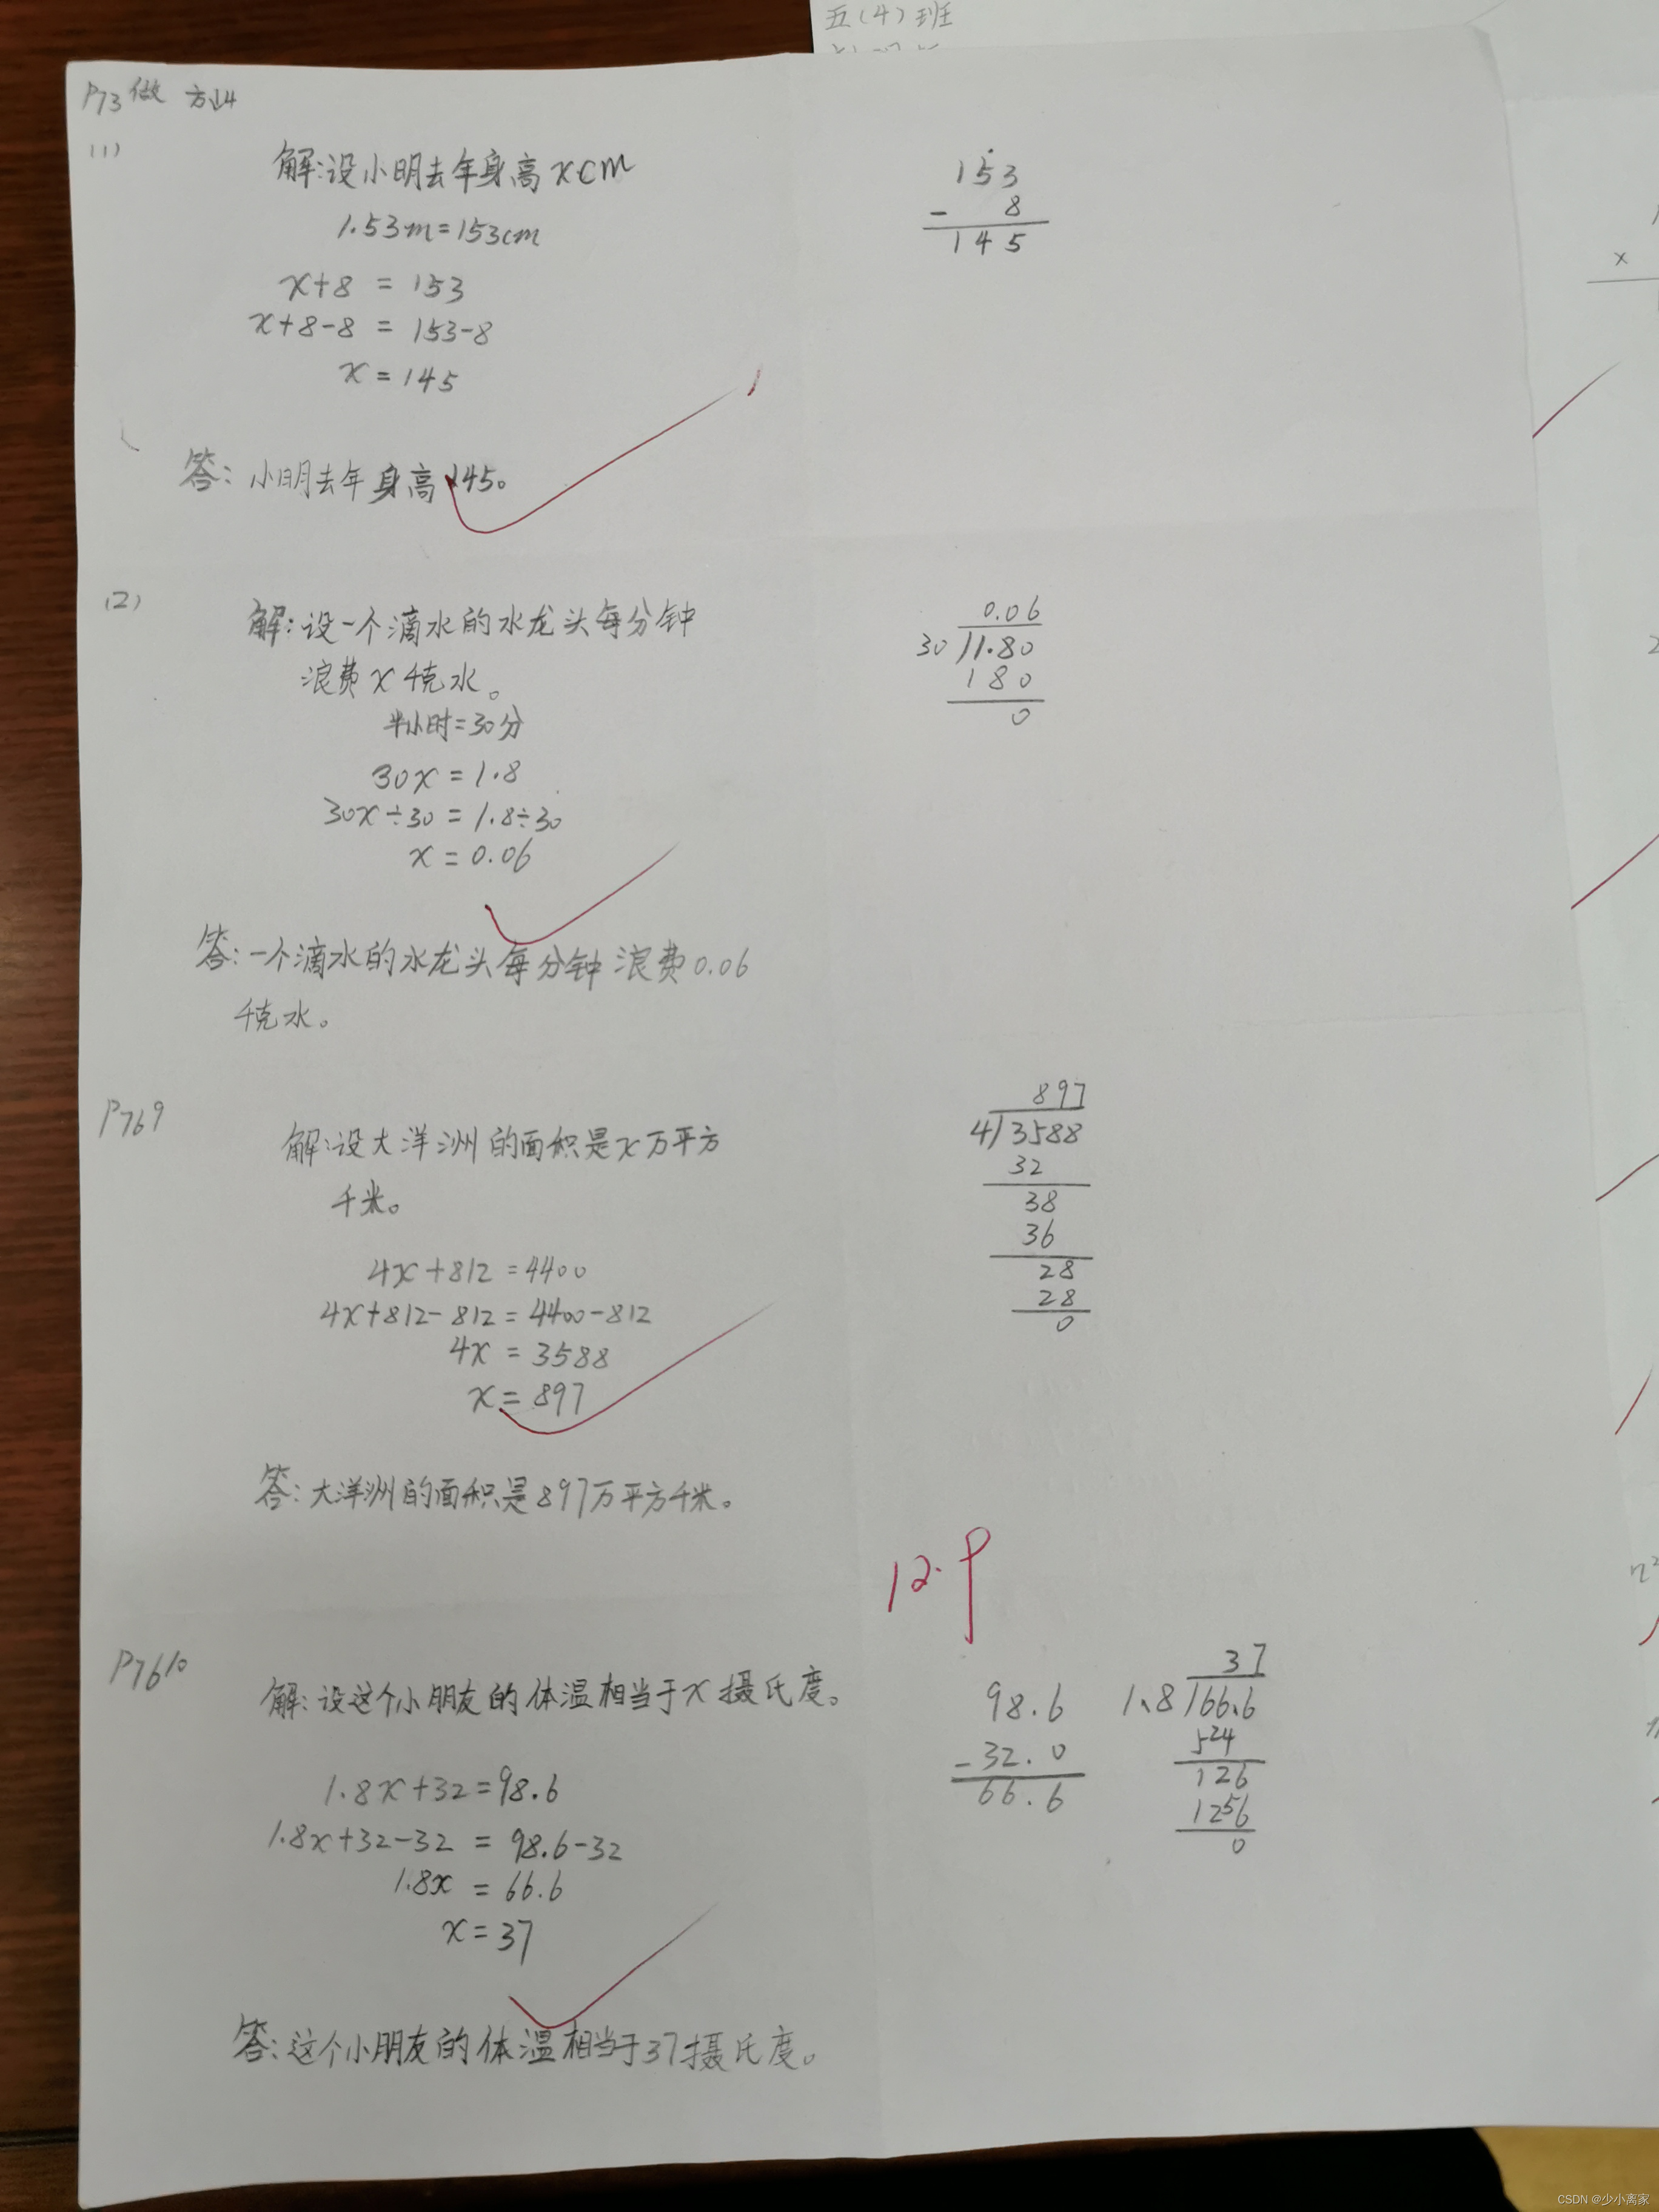 五(4)班
P73 做 方14
(1)
解:设小明去年身高xcm
1.53m=153cm
x+8 = 153
x+8-8 = 153-8
x = 145
答: 小明去年身高145。
153
- 8
145
(2)
解:设一个滴水的水龙头每分钟
浪费x千克水。
半小时=30分
30x = 1.8
30x÷30 = 1.8÷30
x = 0.06
答:一个滴水的水龙头每分钟浪费0.06
千克水。
0.06
30 1.80
180
0
P76 9
解:设大洋洲的面积是x万平方
千米。
4x+812 = 4400
4x+812-812 = 4400-812
4x = 3588
x = 897
答:大洋洲的面积是897万平方千米。
897
4 3588
32
38
36
28
28
0
12.9
P76 10
解:设这个小朋友的体温相当于x摄氏度。
1.8x+32=98.6
1.8x+32-32 = 98.6-32
1.8x = 66.6
x = 37
答:这个小朋友的体温相当于37摄氏度。
98.6
-32.0
66.6
37
1.8 66.6
524
126
1256
0
×
CSDN @少小离家